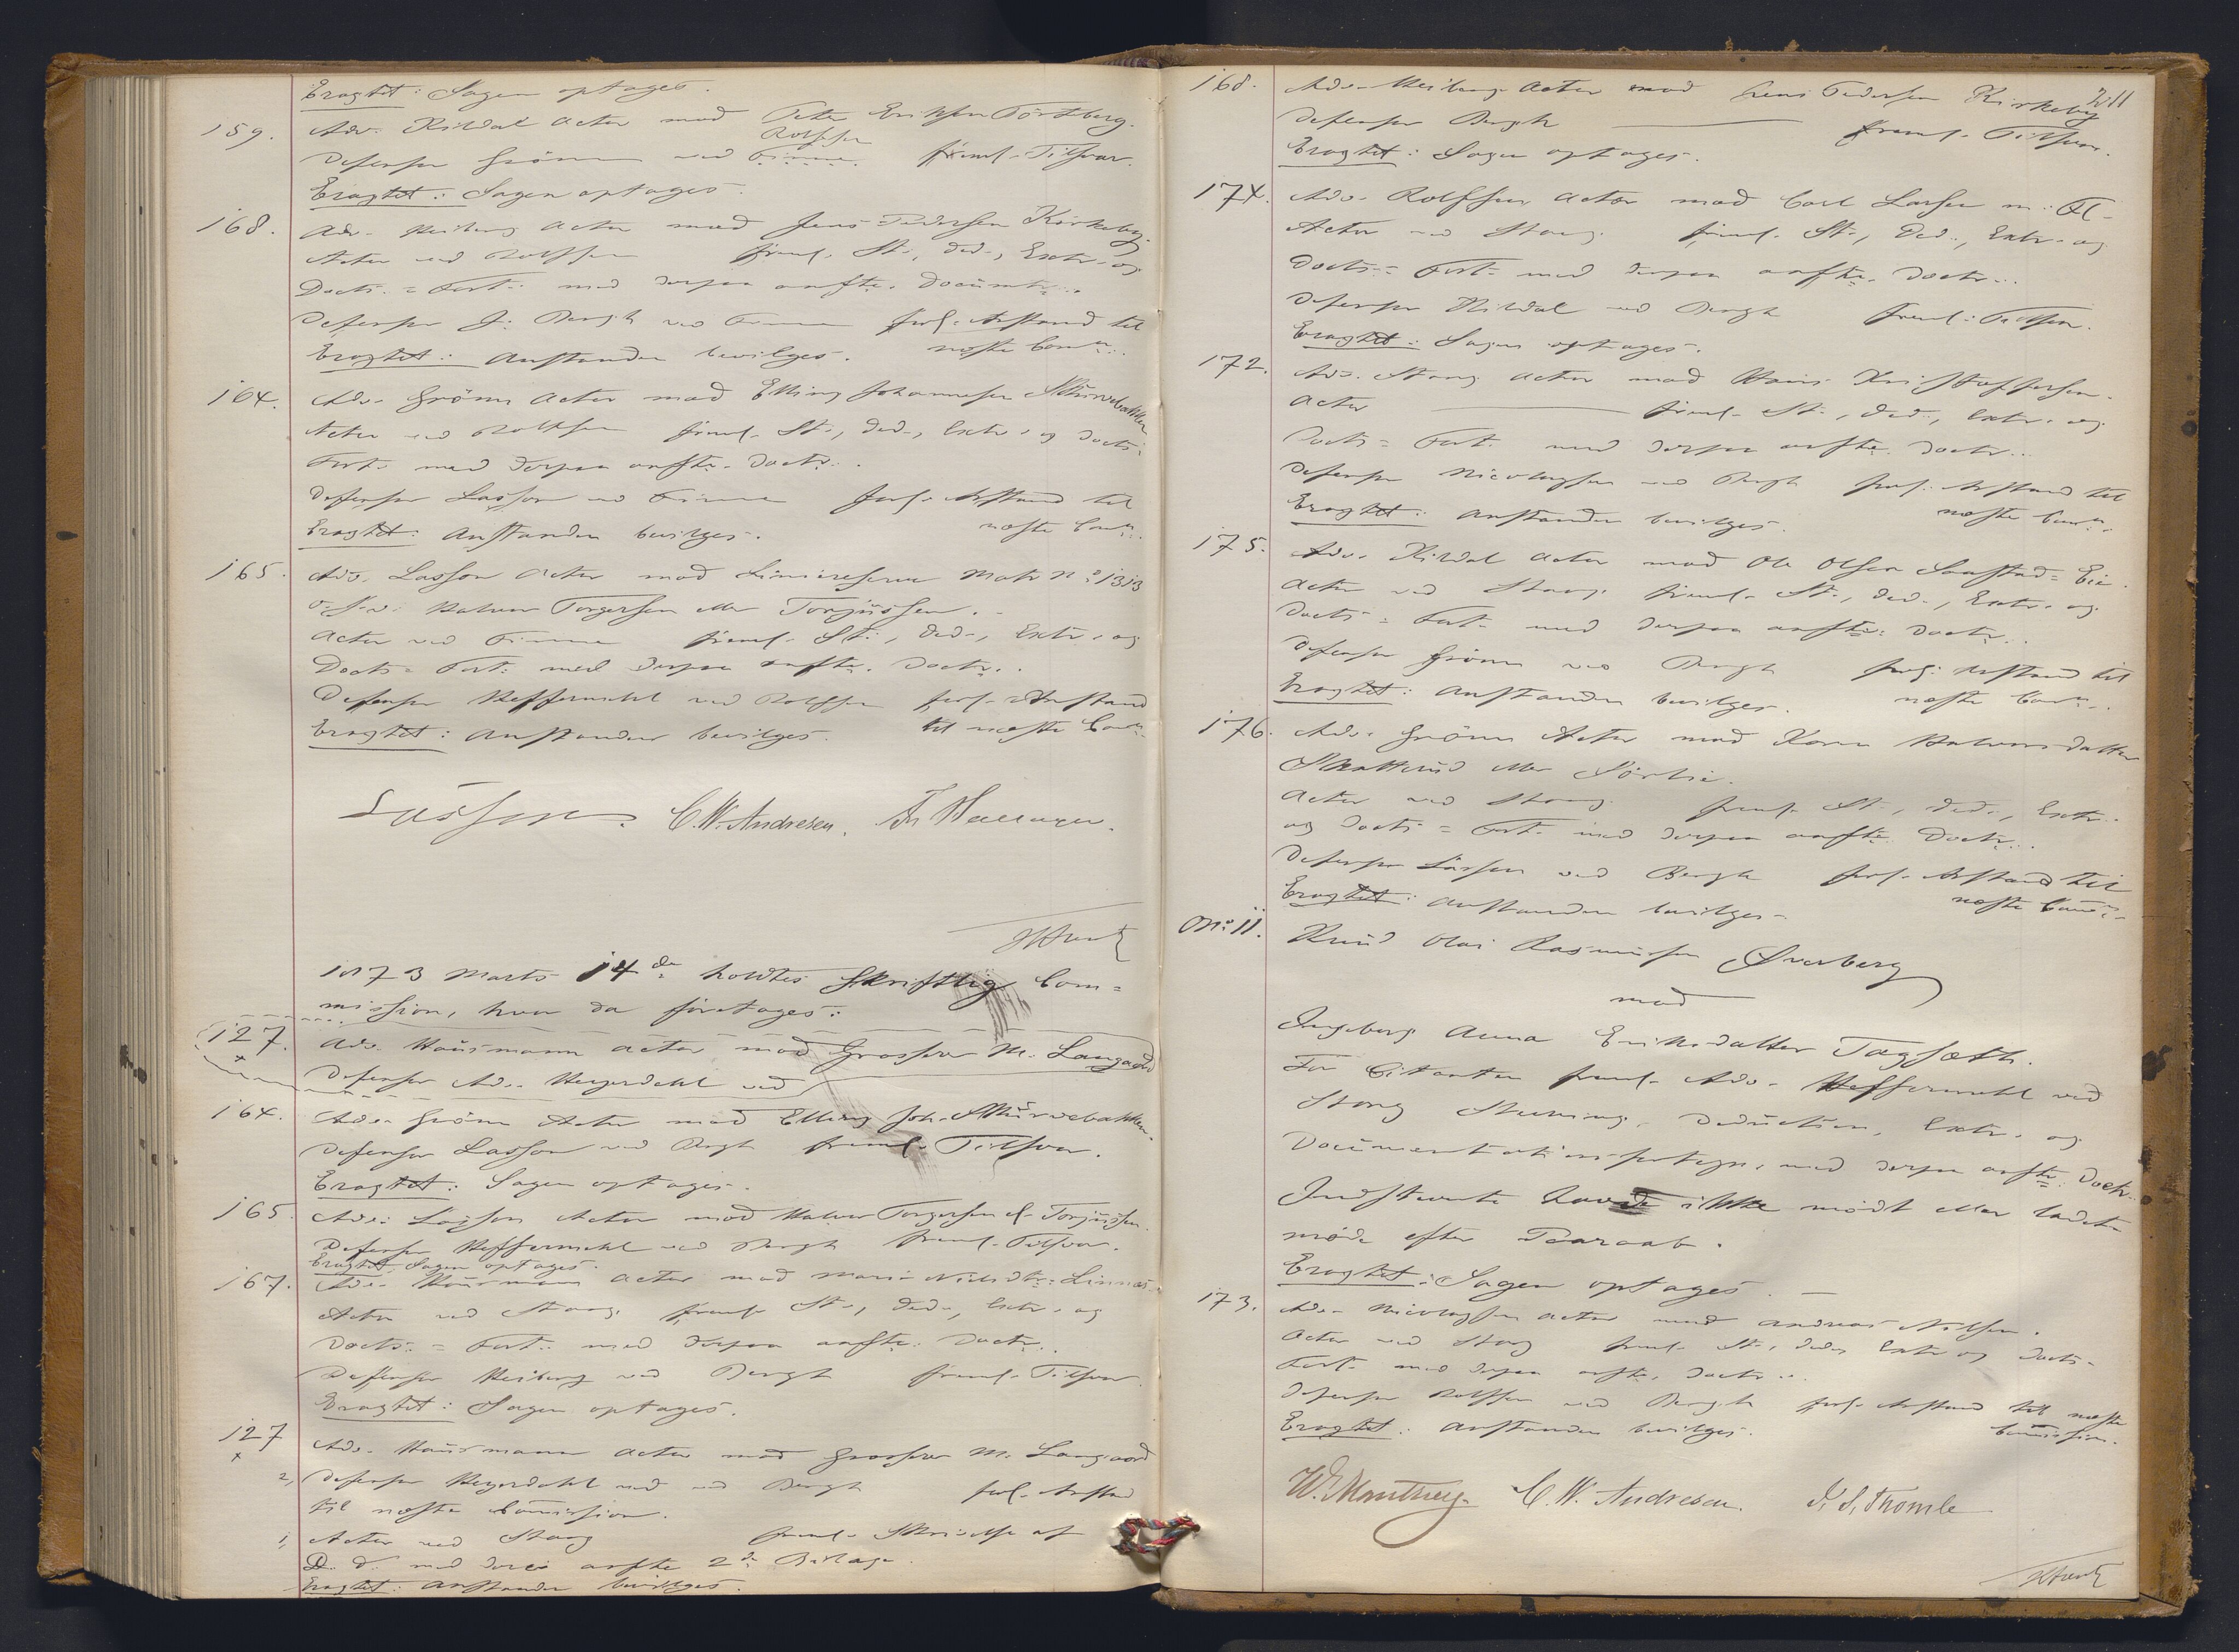 Eragtet: Sagen optages.
159. Adv. Kildal Actor mod Peter Eriksen Törtberg.
Rolfsen
Defensor Grönn ved Finne. freml. Tilsvar.
Eragtet: Sagen optages.
168. Adv. Heiberg Actor mod Jens Pedersen Kirkeby.
Actor ved Rolfsen freml. St., Ded., Extr. og
Docts. = Fort. med derpaa anfte. Documtr.
Defensor J. Bergh ved Finne forl. Anstand til
Eragtet: Anstanden bevilges. næste Comn.
164. Adv. Grönn Actor mod Elling Johannesen Skurvebakken
Actor ved Rolfsen freml. St., Ded., Extr. og Docts.
Fort. med derpaa anfte. Doctr.
Defensor Lasson ved Finne forl. Anstand til
Eragtet: Anstanden bevilges. næste Comn.
165. Adv. Lasson Actor mod Liniereserve Matr No 1313
Halvor Torgersen eller Torjussen.
Actor ved Finne freml. St., Ded., Extr. og
Docts. Fort. med derpaa anfte. Doctr.
Defensor Heffermehl ved Rolfsen forl. Anstand
Eragtet: Anstanden bevilges. til næste Comn.
Lasson. C. W. Andresen.
1873 Marts 14de holdtes Skriftlig Com=
mission, hvor da foretoges:
127. Adv. Hausmann Actor mod Grosserer M. Langaard
Defensor Adv. Heyerdahl ved
164. Adv. Grönn Actor mod Elling Joh. Skurvebakken.
Defensor Lasson ved Bergh freml. Tilsvar.
Eragtet: Sagen optages.
165. Adv. Lasson Actor mod Halvor Torgersen el. Torjussen.
Defensor Heffermehl ved Bergh freml. Tilsvar.
Eragtet: Sagen optages.
167. Adv. Hausmann Actor mod Marie Nielsdtr. Linnes
Actor ved Stang freml. St., Ded., Extr. og
Docts. = Fort. med derpaa anfte. Doctr.
Defensor Heiberg ved Bergh freml. Tilsvar.
Eragtet: Sagen optages.
127 Adv. Hausmann Actor mod Grosserer M. Langaard
2, Defensor Heyerdahl ved Bergh forl. Anstand
til næste Commission.
1, Actor ved Stang freml. Skrivelse af
D. d. med deri anfte 2de Bilage.
Eragtet: Anstanden bevilges.
168. Adv. Heiberg Actor mod Jens Pedersen Kirkeby
Defensor Bergh freml. Tilsvar.
Eragtet: Sagen optages.
174. Adv. Rolfsen Actor mod Carl Larsen m: Fl.
Actor ved Stang freml. St., Ded., Extr. og
Docts. = Fort. med derpaa anfte. Doctr.
Defensor Kildal ved Bergh freml. Tilsvar.
Eragtet: Sagen optages.
172. Adv. Stang Actor mod Hans Kristoffersen.
Actor freml. St., Ded., Extr. og
Docts = Fort. med derpaa anfte. Doctr.
Defensor Nicolaysen ved Bergh forl. Anstand til
Eragtet: Anstanden bevilges. næste Comn.
175. Adv. Kildal Actor mod Ole Olsen Saastad=Eie.
Actor ved Stang freml. St., Ded., Extr. og
Docts = Fort. med derpaa anfte. Doctr.
Defensor Grönn ved Bergh forl. Anstand til
Eragtet: Anstanden bevilges. næste Comn.
176. Adv. Grönn Actor mod Karen Halvorsdatter
Skatterud eller Sörlie.
Actor ved Stang freml. St., Ded., Extr.
og Docts = Fort. med derpaa anfte. Doctr.
Defensor Lasson ved Bergh forl. Anstand til
Eragtet: Anstanden bevilges. næste Comn.
No. 11. Knud Olai Rasmussen Sverberg
mod
Ingeborg Anna Eriksdatter Tagsæth.
For Citanten freml. Adv. Heffermehl ved
Stang Stevning, Deduction, Extr. og
Documentationsfortegn. med derpaa anfte. Doctr.
Indstevnte havde ikke mödt eller ladet
möde efter Paaraab.
Eragtet: Sagen optages.
173. Adv. Nicolaysen Actor mod Andreas Nilsen.
Actor ved Stang freml. St., Ded., Extr. og Docts.
Fort. med derpaa anfte. Doctr.
Defensor Rolfsen ved Bergh forl. Anstand til næste
Eragtet: Anstanden bevilges. Commission.
C. W. Andresen. J. S. Thomle